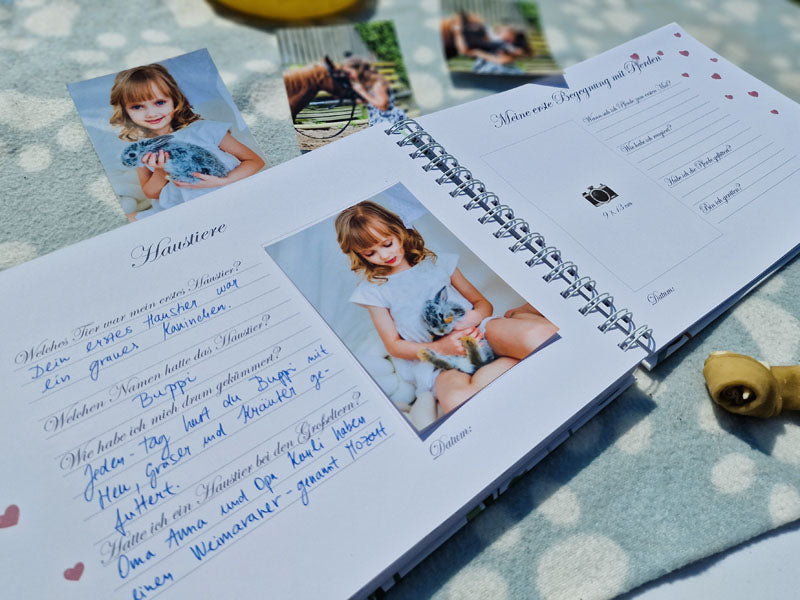 Haustiere
Welches Tier war mein erstes Haustier?
Dein erstes Haustier war
ein graues Kaninchen.
Welchen Namen hatte das Haustier?
Buppi
Wie habe ich mich drum gekümmert?
Jeden Tag hast du Buppi mit
Heu, Gräser und Kräuter ge-
füttert.
Hatte ich ein Haustier bei den Großeltern?
Oma Anna und Opa Kauli haben
einen Weimaraner - genannt Mozart
Datum:
Meine erste Begegnung mit Pferden
Wann sah ich Pferde zum ersten Mal?
Wie habe ich reagiert?
Habe ich die Pferde gefüttert?
Bin ich geritten?
9 x 13 cm
Datum: